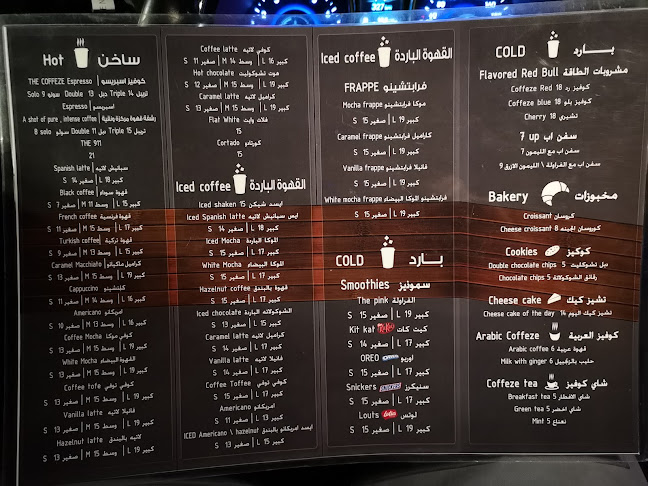 327 km
Hot ساخن
THE COFFEZE Espresso | كوفيز اسبريسو
Solo 9 سولو Double 13 دبل Triple 14 تريبل
Espresso | اسبريسو
A shot of pure , intense coffee | رشفة قهوة مركزة ونقية
8 solo سولو Double 11 دبل Triple 15 تريبل
THE 911
21
Spanish latte | سبانيش لاتيه
S 14 صغير | L 18 كبير
Black coffee | قهوة سوداء
S 11 صغير | M 13 وسط | L 16 كبير
French coffee | قهوة فرنسية
S 11 صغير | M 15 وسط | L 17 كبير
Turkish coffee | قهوة تركية
S 9 صغير | M 13 وسط | L 15 كبير
Caramel Macchiato | كراميل ماكياتو
S 13 صغير | M 15 وسط | L 19 كبير
Cappuccino كابتشينو
S 11 صغير | M 14 وسط | L 16 كبير
Americano امريكانو
S 10 صغير | M 13 وسط | L 16 كبير
Coffee Mocha كوفي موكا
S 13 صغير | M 15 وسط | L 19 كبير
White Mocha القهوة البيضاء
S 13 صغير | M 15 وسط | L 19 كبير
Coffee tofe كوفي توفي
S 13 صغير | M 15 وسط | L 19 كبير
Vanilla latte فانيلا لاتيه
S 13 صغير | M 15 وسط | L 19 كبير
Hazelnut latte لاتيه بالبندق
S 13 صغير | M 15 وسط | L 19 كبير
Coffee latte كوفي لاتيه
S 11 صغير | M 14 وسط | L 16 كبير
Hot chocolate هوت شوكوليت
S 12 صغير | M 15 وسط | L 17 كبير
Caramel latte كراميل لاتيه
S 13 صغير | M 15 وسط | L 19 كبير
Flat White فلات وايت
15
Cortado كورتادو
15
Iced coffee القهوة الباردة
Iced shaken 15 ايسد شيكن
Iced Spanish latte ايس سبانيش لاتيه
S 14 صغير | L 18 كبير
Iced Mocha الموكا الباردة
S 15 صغير | L 17 كبير
White Mocha الموكا البيضاء
S 15 صغير | L 17 كبير
Hazelnut coffee قهوة بالبندق
S 15 صغير | L 17 كبير
Iced chocolate الشوكولاته الباردة
S 13 صغير | L 15 كبير
Caramel latte كراميل لاتيه
S 14 صغير | L 17 كبير
Vanilla latte فانيلا لاتيه
S 15 صغير | L 17 كبير
Coffee Toffee كوفي توفي
S 15 صغير | L 17 كبير
Americano امريكانو
S 11 صغير | L 15 كبير
ICED Americano \ hazelnut ايسد امريكانو بالبندق
S 13 صغير | L 15 كبير
Iced coffee القهوة الباردة
FRAPPE فرابتشينو
Mocha frappe موكا فرابتشينو
S 15 صغير | L 19 كبير
Caramel frappe كاراميل فرابتشينو
S 15 صغير | L 19 كبير
Vanilla frappe فانيلا فرابتشينو
S 15 صغير | L 19 كبير
White mocha frappe فرابتشينو الموكا البيضاء
S 15 صغير | L 19 كبير
COLD بارد
Smoothies سموثيز
The pink الفراولة
S 15 صغير | L 19 كبير
Kit kat KitKat كيت كات
S 15 صغير | L 19 كبير
OREO OREO اوريو
S 15 صغير | L 17 كبير
Snickers SNICKERS سنيكرز
S 15 صغير | L 17 كبير
Louts Lotus لوتس
S 15 صغير | L 19 كبير
COLD بارد
Flavored Red Bull مشروبات الطاقة
Coffeze Red 18 كوفيز رد
Coffeze blue 18 كوفيز بلو
Cherry 18 تشيري
7 up سفن اب
سفن اب مع الليمون 7
سفن اب مع الفراولة \ الليمون الازرق 9
Bakery مخبوزات
Croissant كروسان
Cheese croissant 8 كوروسان الجبنه
Cookies كوكيز
Double chocolate chips 5 دبل تشوكليت
Chocolate chips 5 رقائق الشوكولاتة
Cheese cake تشيز كيك
Cheese cake of the day 14 تشيز كيك اليوم
Arabic Coffeze كوفيز العربية
Arabic coffee 6 قهوة عربية
Milk with ginger 6 حليب بالزنجبيل
Coffeze tea شاي كوفيز
Breakfast tea 5 شاي الافطار
Green tea 5 شاي اخضر
Mint 5 نعناع